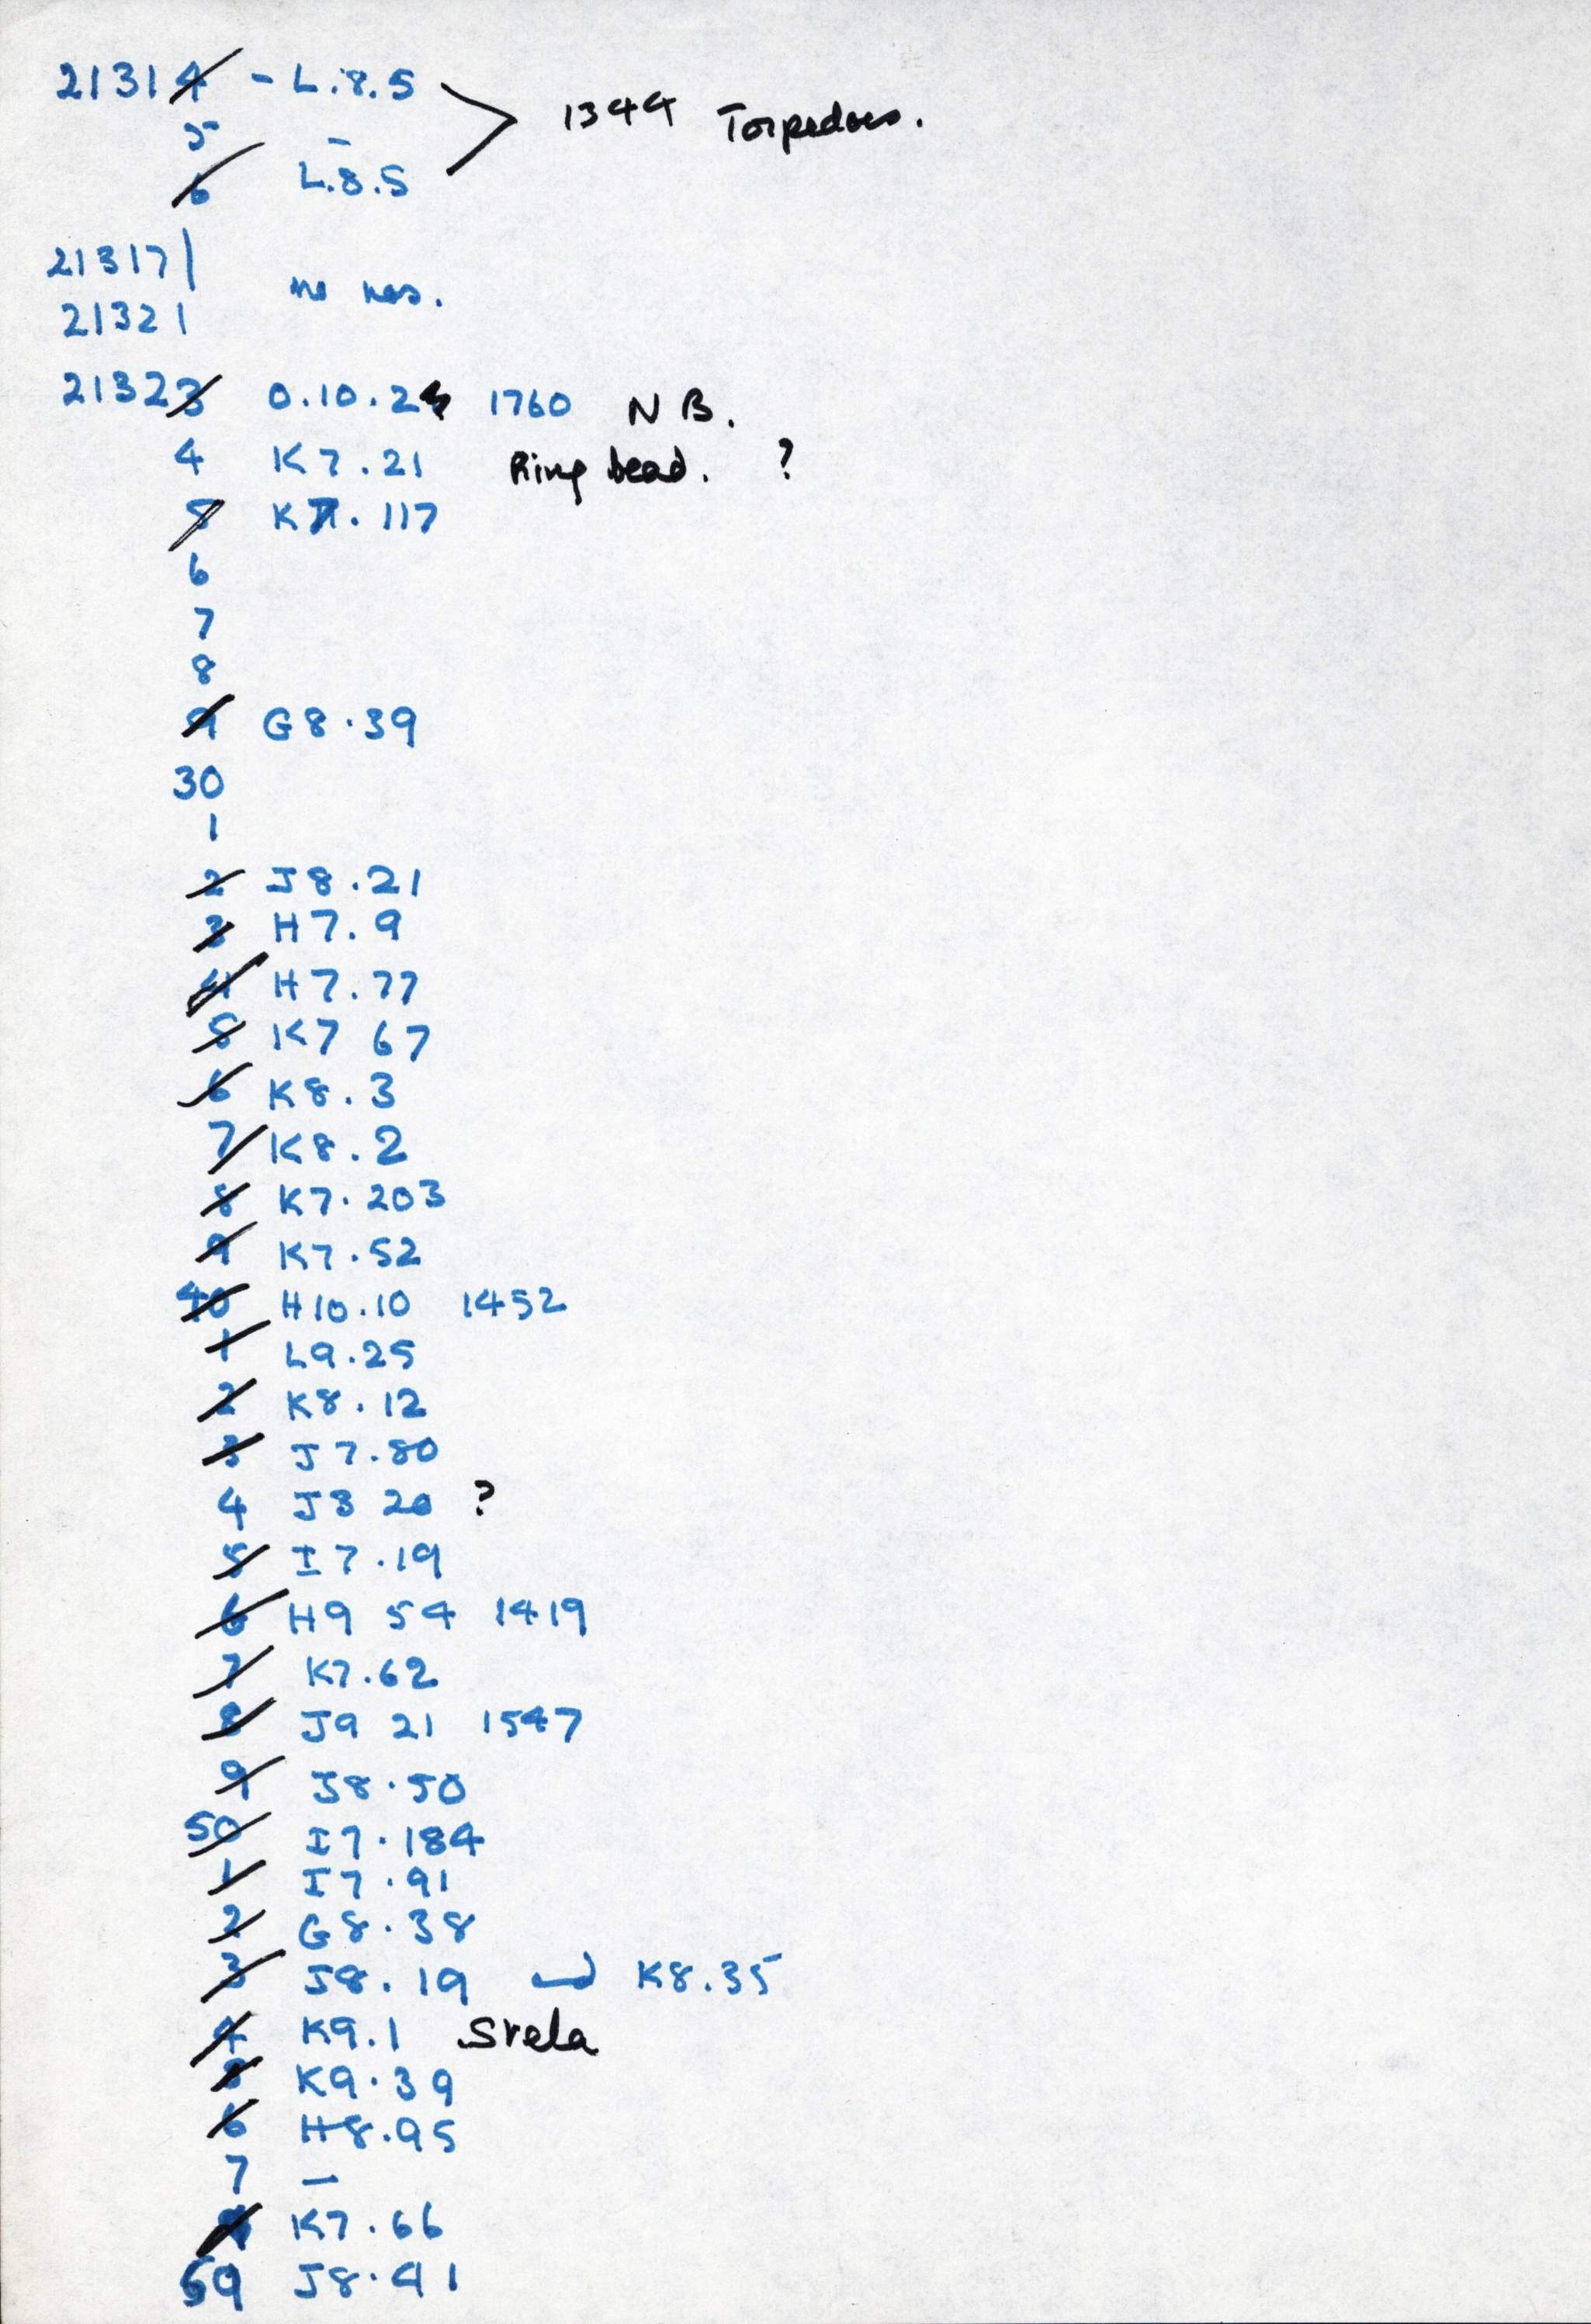 21314 - L.8.5
5 - 1344 Torpedoes.
6 L.8.5
21317
no nos.
21321
21323 O.10.24 1760 NB.
4 K7.21 Ring bead. ?
5 K7.117
6
7
8
9 G8.39
30
1
2 J8.21
3 H7.9
4 H7.77
5 K7 67
6 K8.3
7 K8.2
8 K7.203
9 K7.52
40 H10.10 1452
1 L9.25
2 K8.12
3 J7.80
4 J8 20 ?
5 I7.19
6 H9 54 1419
7 K7.62
8 J9 21 1547
9 J8.50
50 I7.184
1 I7.91
2 G8.38
3 J8.19 K8.35
4 K9.1 Stela
5 K9.39
6 H8.95
7 -
K7.66
59 J8.41